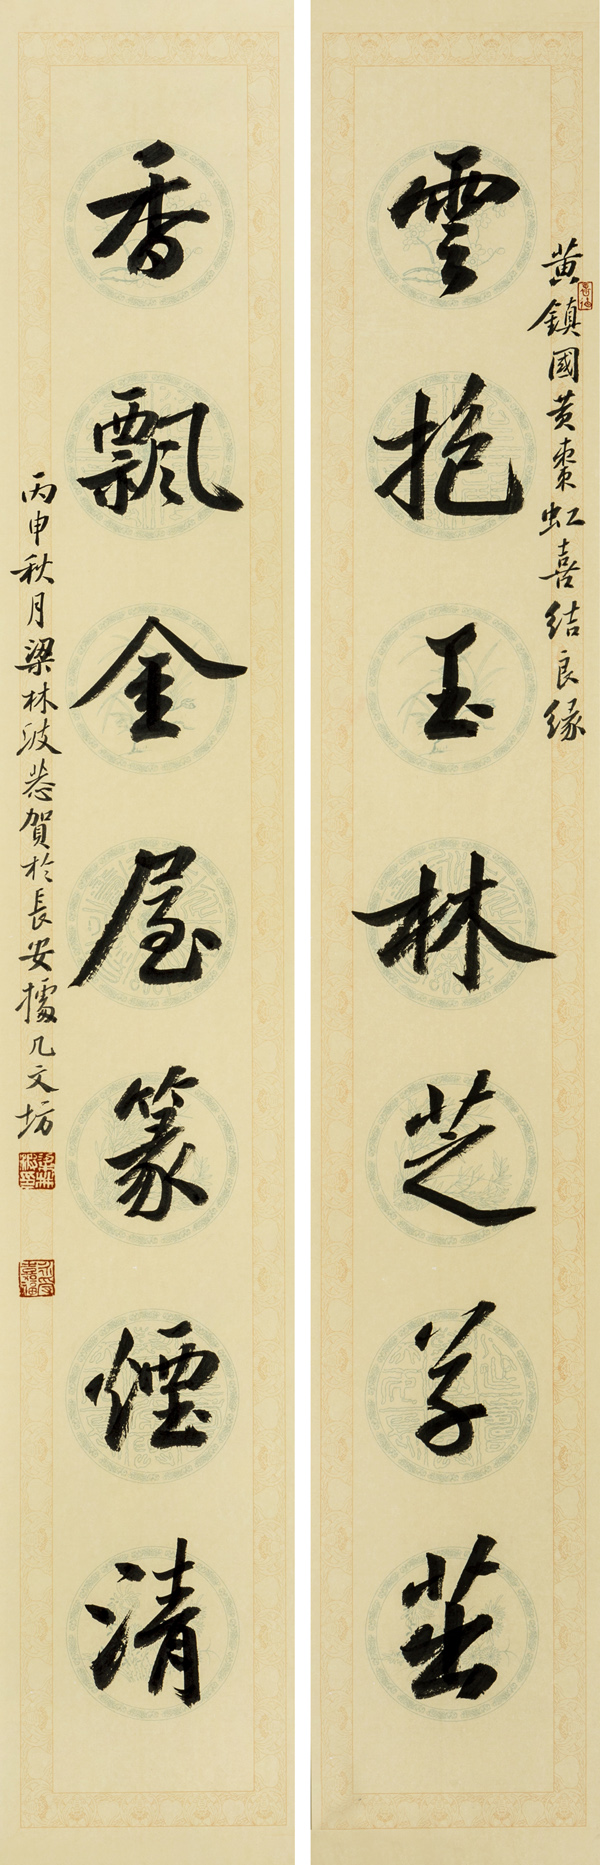 黄鎮國黄棗虹喜結良緣
雲抱玉林芝草茁
香飄金屋篆煙清
丙申秋月梁林波恭賀於長安擂几文坊